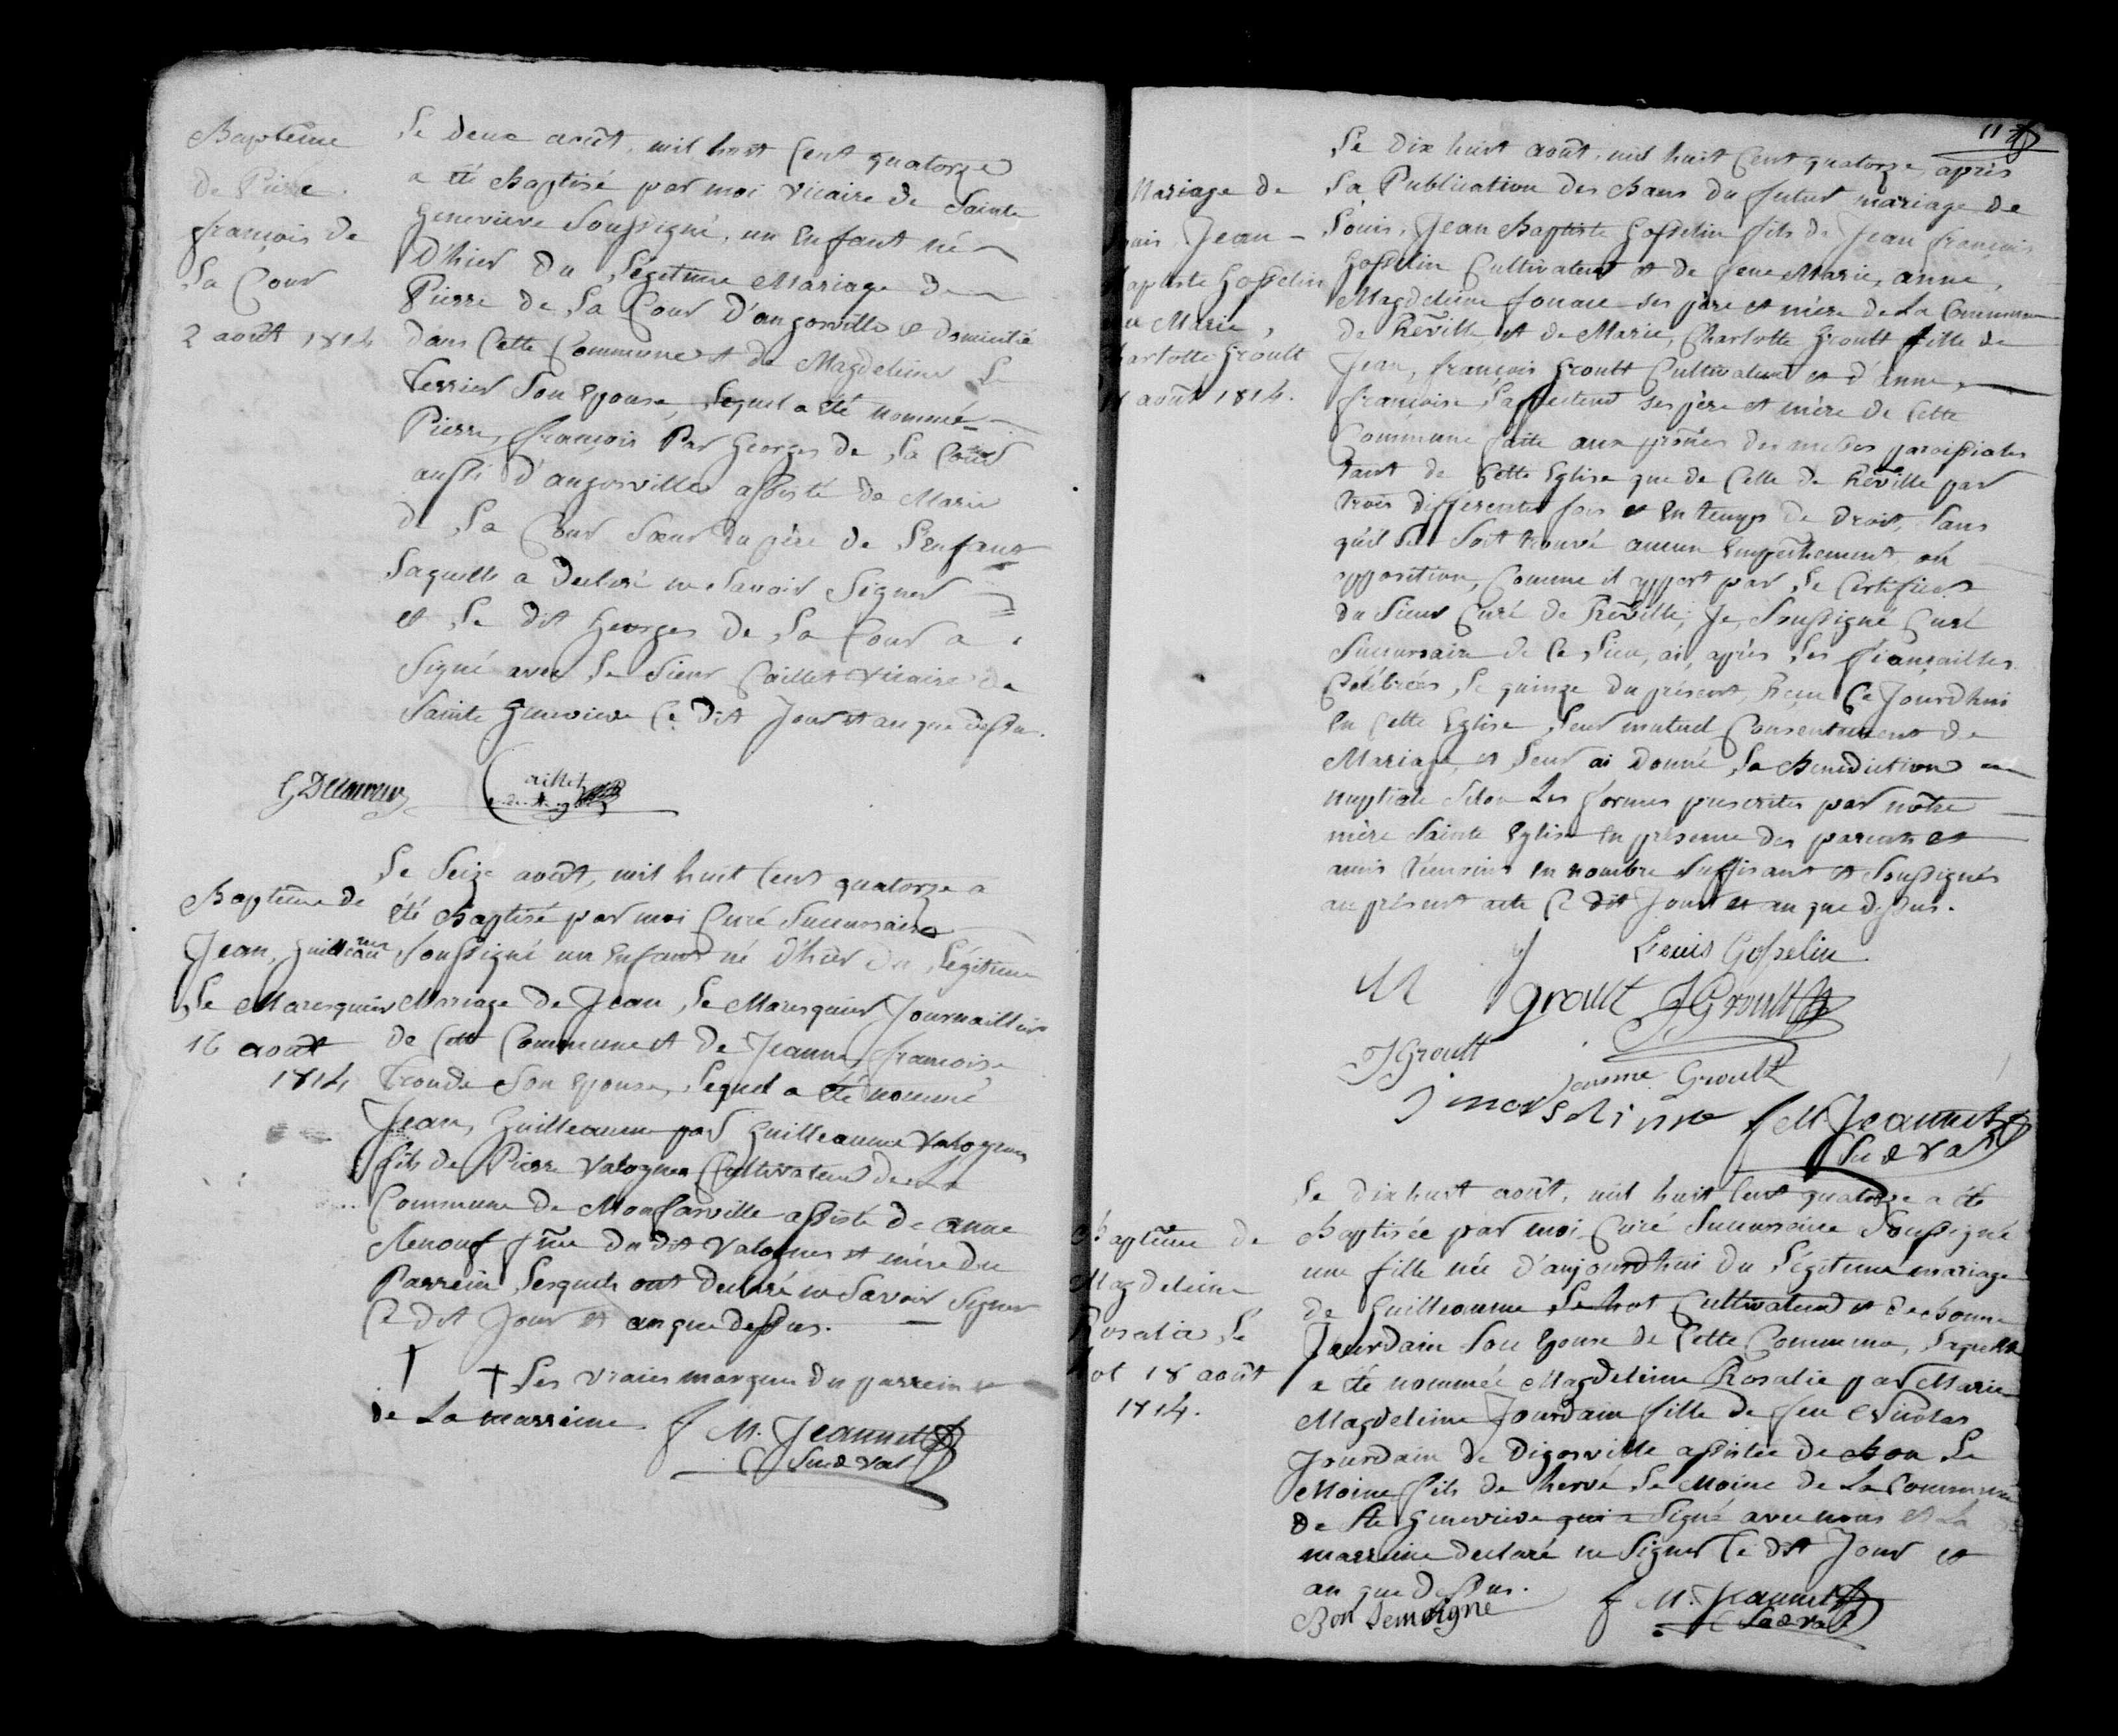 Baptême
de Pierre
françois de
La Cour
2 août 1814
Le deux août, mil huit Cent quatorze
a été Baptisé par moi vicaire de Sainte
Geneviève Soussigné, un Enfant né
D'hier du Légitime Mariage de
Pierre de La Cour D'angosville et domicilié
dans Cette Commune et de Magdeleine Le
Terrier Son Epouse, Lequel a été nommé
Pierre, françois Par Georges de La Cour
aussi d'angosville assisté de Marie
de La Cour Sœur du père de L'enfant
Laquelle a déclaré ne Savoir Signer
et Le dit Georges de La Cour a
Signé avec Le Sieur Caillet vicaire de
Sainte Geneviève Ce dit Jour et an que dessus.
Caillet
Baptême de
Jean, Guilleaume
Le Maresquier
16 août
1814
Le Seize août, mil huit Cent quatorze a
été Baptisé par moi Curé Succursaire
Soussigné un Enfant né d'hier du Légitime
Mariage de Jean, Le Maresquier Journaillier
de Cette Commune et de Jeanne, francoise
Son Epouse, Lequel a été nommé
Jean, Guilleaume par Guilleaume Valognes
fils de Pierre Valognes Cultivateur de La
Commune de Monfarville assisté de anne
Renouf fme du dit Valognes et mère du
Parrein Lesquels ont déclaré ne Savoir Signer
Ce dit Jour et an que dessus.
† † Les vraies marques du parrein et
de La marreine. f M. Jeannet
Suc. de val
11
Mariage de
Jean
Gosselin
Marie,
Groult
août 1814.
Le Dix huit août, mil huit Cent quatorze, après
La Publication des Bans du futur mariage de
Louis, Jean Baptiste Gosselin fils de Jean françois
Gosselin Cultivateur et de feue Marie, anne,
Magdeleine fouace ses père et mère de La Commune
de Réville, et de Marie, Charlotte Groult fille de
Jean, françois Groult Cultivateur et d'anne,
françoise, ses père et mère de Cette
Commune faite aux prônes des messes paroissiales
tant de Cette Eglise que de Celle de Réville par
trois differentes fois et en temps de Droit, Sans
qu'il Se Soit trouvé aucun Empêchement ou
opposition, Comme il appert par Le Certificat
du Sieur Curé de Réville; Je Soussigné Curé
Succursaire de Ce Lieu, ai, après Les fiançailles
Célébrées, Le quinze du présent, Reçu Ce Jourdhui
En Cette Eglise Leur mutuel Consentement de
Mariage, et Leur ai donné La Benediction
nuptiale Selon Les formes prescrites par notre
mère Sainte Eglise En présence des parents et
amis témoins En nombre Suffisant et Soussignés
au présent acte Ce dit Jour et an que dessus.
Louis Gosselin
groult J Groult
J Groult
Jeanne Groult
f M Jeannet
Suc. de val
Baptême de
Magdeleine
Rosalie Le
18 août
1814.
Le dix huit août, mil huit Cent quatorze a été
Baptisée par moi, Curé Succursaire Soussigné
une fille née d'aujourdhui du Légitime mariage
de Guilleaume Le hot Cultivateur et de Bonne
Jourdain Son Epouse de Cette Commune, Laquelle
a été nommée Magdeleine Rosalie par Marie
Magdeleine Jourdain fille de feu Nicolas
Jourdain de Digosville assistée de Bon Le
Moine fils de hervé Le Moine de La Commune
de Ste Geneviève qui a Signé avec nous et La
marreine declaré ne Signer Ce dit Jour et
an que dessus.
Bon Lemoigne
f M. Jeannet
Suc. de val